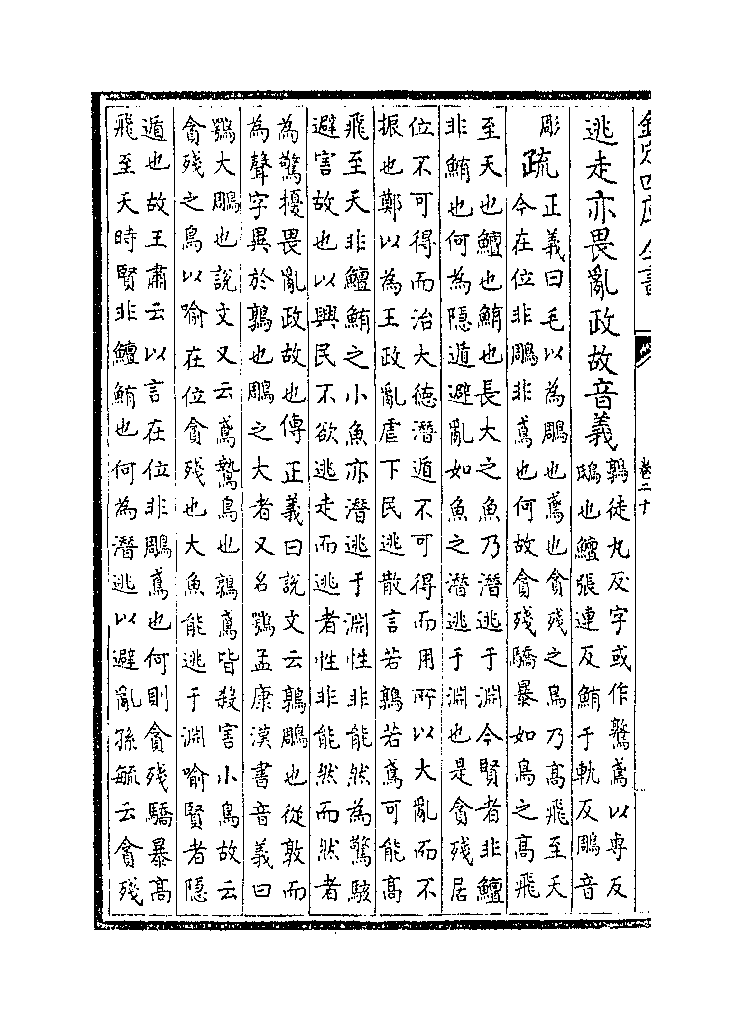 欽定四庫全書
卷二十
逃走亦畏亂政故音義
鶉徒丸反字或作鷻鳶以専反
鴟也鱣張連反鮪于軌反鵰音
彫
疏
正義曰毛以為鵰也鳶也貪殘之鳥乃高飛至天
今在位非鵰非鳶也何故貪殘驕暴如鳥之高飛
至天也鱣也鮪也長大之魚乃潜逃于淵今賢者非鱣
非鮪也何為隠遁避亂如魚之潜逃于淵也是貪殘居
位不可得而治大徳潜遁不可得而用所以大亂而不
振也鄭以為王政亂虐下民逃散言若鶉若鳶可能高
飛至天非鱣鮪之小魚亦潜逃于淵性非能然為驚駭
避害故也以興民不欲逃走而逃者性非能然而然者
為驚擾畏亂政故也傳正義曰説文云鶉鵰也從敦而
為聲字異於鶉也鵰之大者又名鶚孟康漢書音義曰
鶚大鵰也説文又云鳶鷙鳥也鶉鳶皆殺害小鳥故云
貪殘之鳥以喻在位貪殘也大魚能逃于淵喻賢者隠
遁也故王肅云以言在位非鵰鳶也何則貪殘驕暴高
飛至天時賢非鱣鮪也何為潜逃以避亂孫毓云貪殘